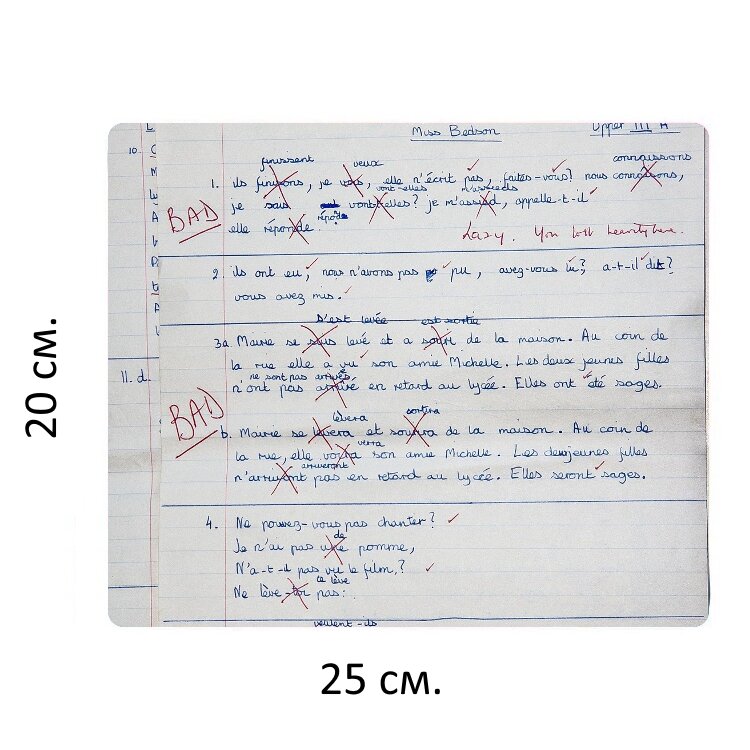 Miss Bedson Upper III A
finissent veux connaissons
1. ils finirons, je vois, elle n'écrit pas, faites-vous? nous connaisons,
vont-elles m'assieds
je sais vont-elles? je m'assied, appelle-t-il
BAD
répond
elle réponde. Lazy. You lost
2 ils ont eu, nous n'avons pas pu, avez-vous lu? a-t-il dit?
vous avez mis.
S'est levée est sortie
3a. Marie se levé et a de la maison. Au coin de
la rue elle a vu son amie Michelle. Les deux jeunes filles
ne sont pas arrivés
n'ont pas arrivé en retard au lycée. Elles ont été sages.
11. d.
BAD
lèvera sortira
b. Marie se levera et de la maison. Au coin de
verra
la rue, elle son amie Michelle. Les deux jeunes filles
arriveront
n'arriront pas en retard au lycée. Elles seront sages.
4. Ne pouvez-vous pas chanter?
de
Je n'ai pas une pomme,
N'a-t-il pas vu le film?
te lève
Ne lève-toi pas.
veulent-ils
20 см.
25 см.